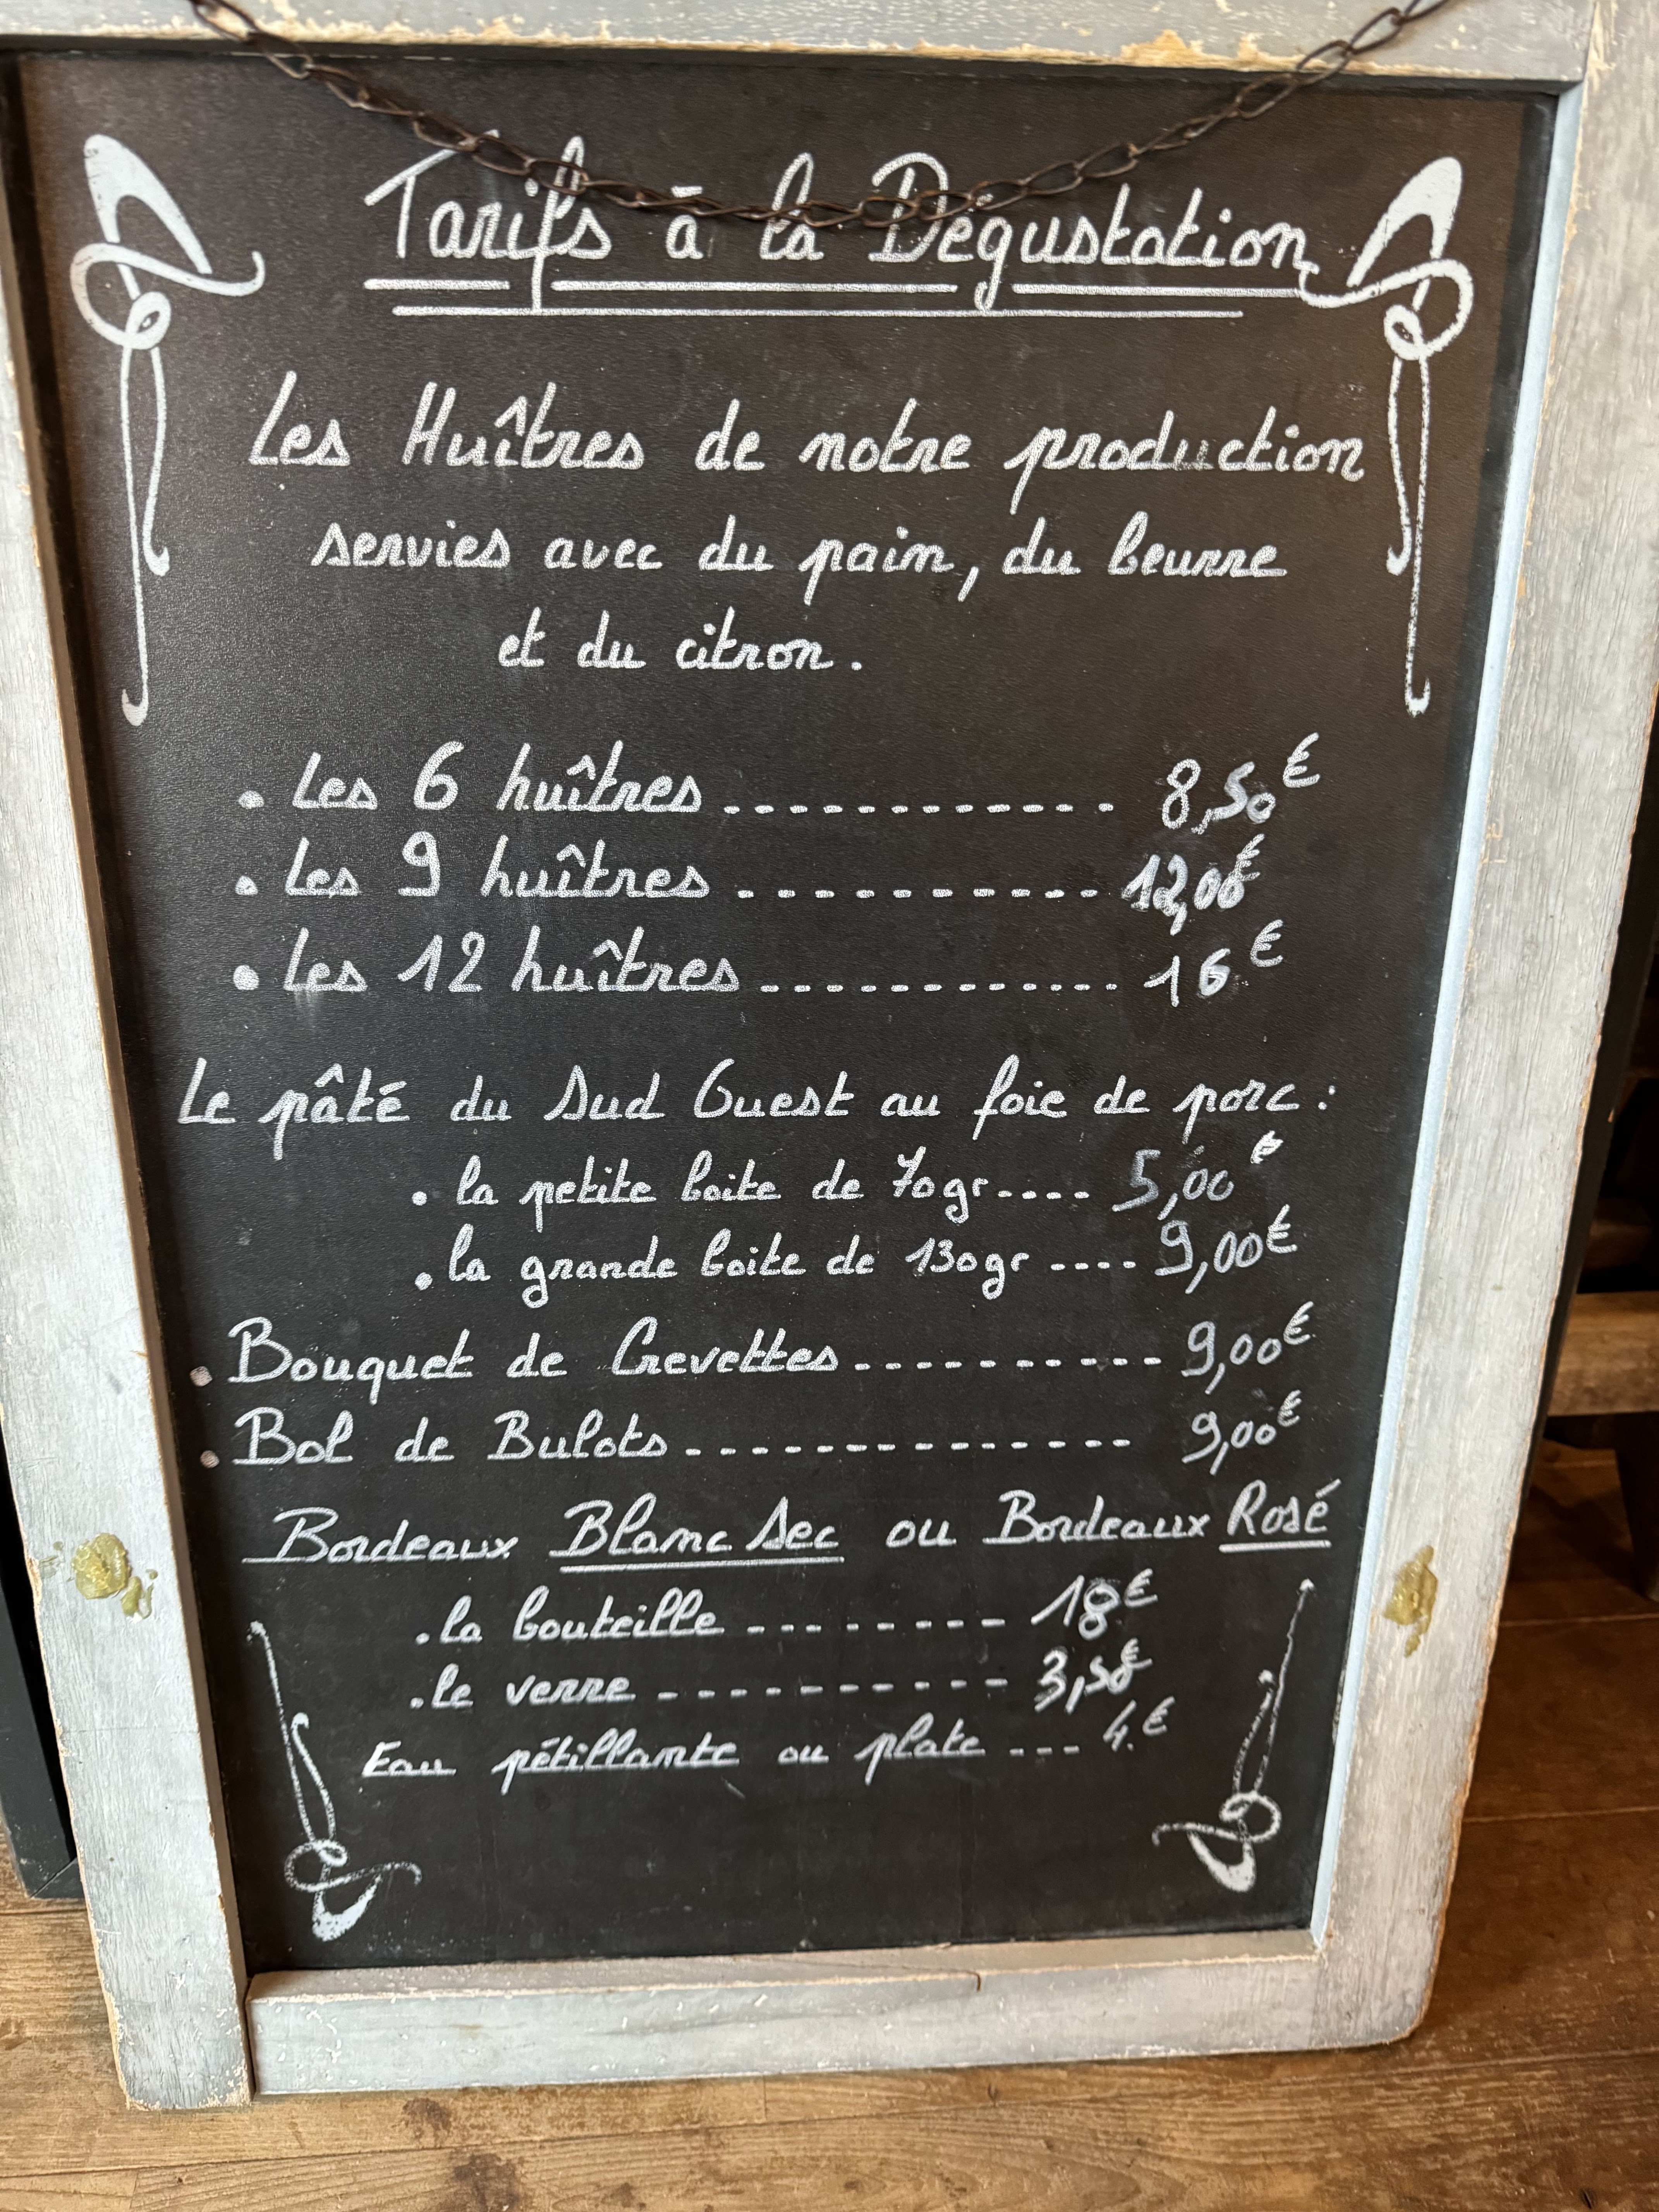 Tarifs à la Dégustation
Les Huîtres de notre production
servies avec du pain, du beurre
et du citron.
. Les 6 huîtres ............ 8,50€
. Les 9 huîtres ........... 12,00€
. Les 12 huîtres ............. 16€
Le pâté du Sud Ouest au foie de porc :
. la petite boite de 70gr.... 5,00€
. la grande boite de 130gr .... 9,00€
. Bouquet de Crevettes ........... 9,00€
. Bol de Bulots ............... 9,00€
Bordeaux Blanc Sec ou Bordeaux Rosé
. la bouteille --------- 18€
. le verre ----------- 3,50€
Eau pétillante ou plate --- 4€